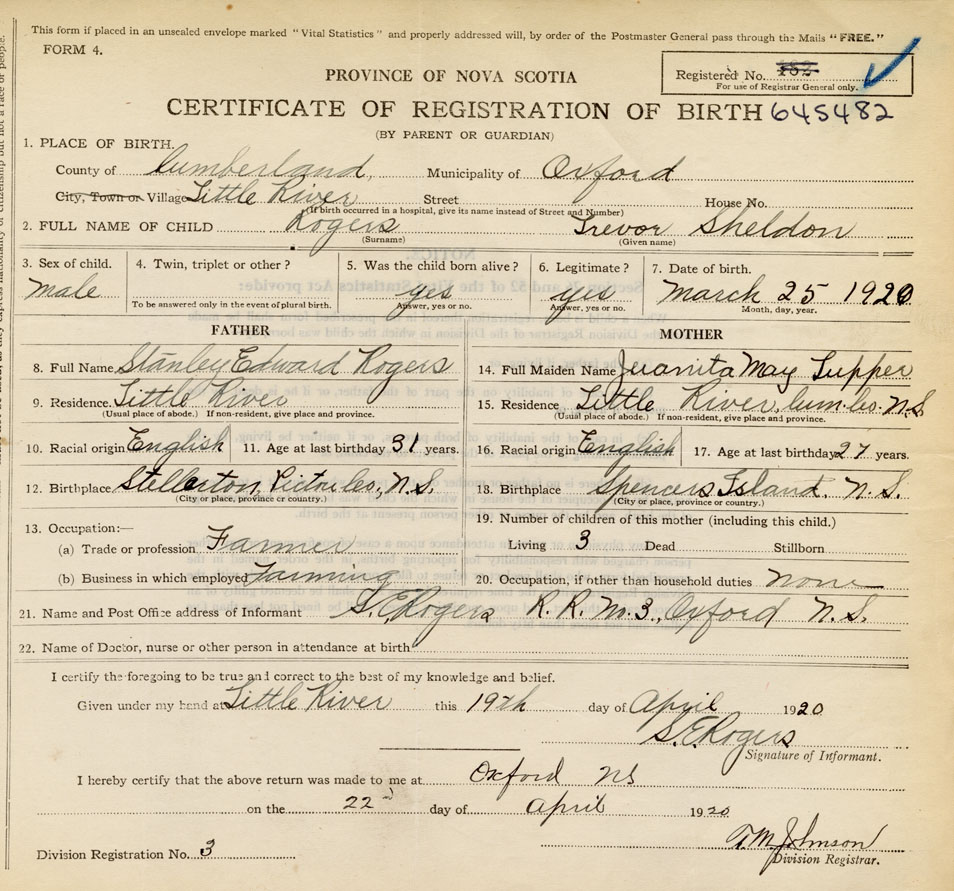 This form if placed in an unsealed envelope marked "Vital Statistics" and properly addressed will, by order of the Postmaster General pass through the Mails "FREE."
FORM 4.
PROVINCE OF NOVA SCOTIA
Registered No. 162
For use of Registrar General only.
CERTIFICATE OF REGISTRATION OF BIRTH 645482
(BY PARENT OR GUARDIAN)
1. PLACE OF BIRTH.
County of Cumberland, Municipality of Oxford
City, Town or Village Little River Street House No.
(If birth occurred in a hospital, give its name instead of Street and Number)
2. FULL NAME OF CHILD Rogers Trevor Sheldon
(Surname) (Given name)
3. Sex of child. 4. Twin, triplet or other? 5. Was the child born alive? 6. Legitimate? 7. Date of birth.
male yes yes March 25 1920
To be answered only in the event of plural birth. Answer, yes or no. Answer, yes or no. Month, day, year.
FATHER MOTHER
8. Full Name Stanley Edward Rogers 14. Full Maiden Name Juanita May Tupper
9. Residence. Little River 15. Residence Little River, Cum. Co. N.S
(Usual place of abode.) If non-resident, give place and province. (Usual place of abode.) If non-resident, give place and province.
10. Racial origin English 11. Age at last birthday 31 years. 16. Racial origin English 17. Age at last birthday 27 years.
12. Birthplace Stellarton, Pictou Co., N.S. 18. Birthplace Spencers Island N.S.
(City or place, province or country.) (City or place, province or country.)
13. Occupation:— 19. Number of children of this mother (including this child.)
(a) Trade or profession Farmer Living 3 Dead Stillborn
(b) Business in which employed Farming 20. Occupation, if other than household duties none
21. Name and Post Office address of Informant S. E. Rogers R. R. No. 3., Oxford N.S.
22. Name of Doctor, nurse or other person in attendance at birth
I certify the foregoing to be true and correct to the best of my knowledge and belief.
Given under my hand at Little River this 19th day of April 1920
S. E. Rogers
Signature of Informant.
I hereby certify that the above return was made to me at Oxford NS
on the 22 day of April 1920
Division Registration No. 3
Johnson
Division Registrar.